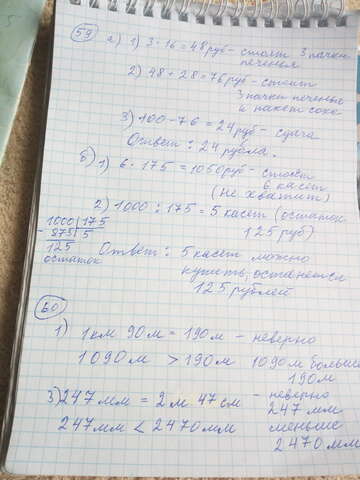 59
а) 1) 3·16 = 48 руб - стоят 3 пачки
печенья
2) 48 + 28 = 76 руб - стоит
3 пачки печенья
и пакет сока
3) 100 - 76 = 24 руб - сдача
Ответ: 24 рубля.
б) 1) 6 · 175 = 1050 руб - стоят
6 касет
(не хватит)
2) 1000 : 175 = 5 касет (остаток
125 руб)
1000 | 175
- 875 | 5
125
остаток
Ответ: 5 касет можно
купить, останется
125 рублей
60
1) 1 км 90 м = 190 м - неверно
1090 м > 190 м 1090 м больше
190 м
3) 247 мм = 2 м 47 см - неверно
247 мм
247 мм < 2470 мм меньше
2470 мм